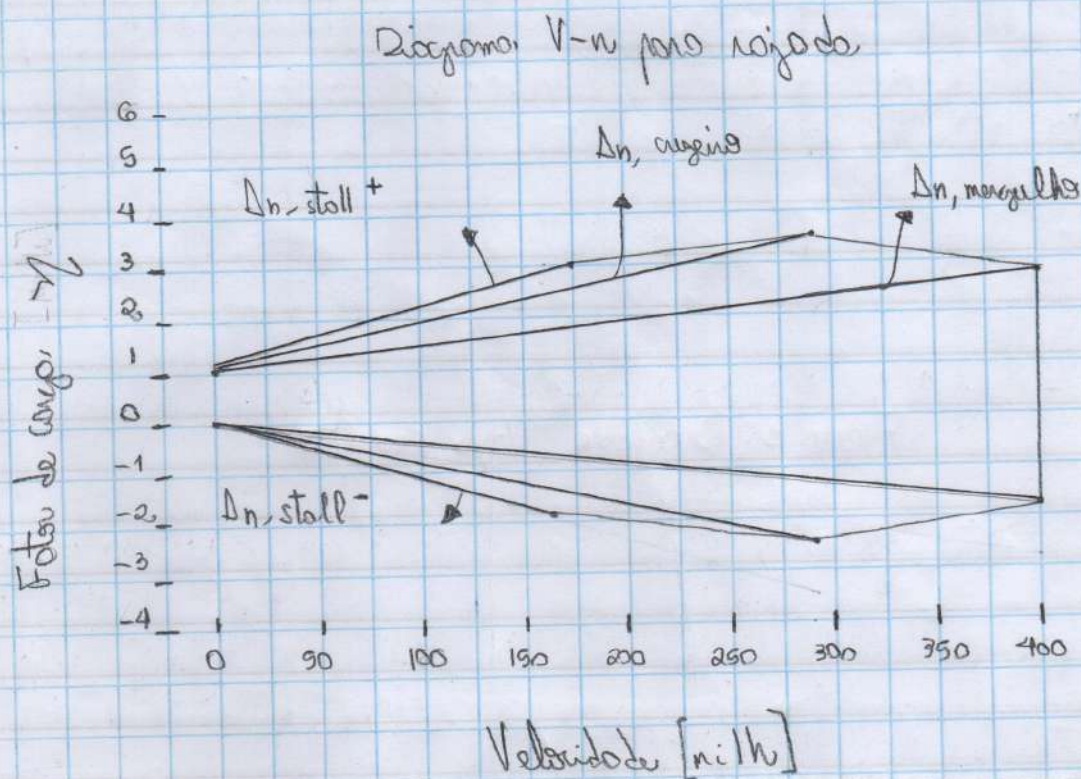 Diagrama V-n para rajada
6
5
4
3
2
1
0
-1
-2
-3
-4
Δn, stall +
Δn, cruzeiro
Δn, mergulho
Δn, stall -
Fator de carga - η
0 50 100 150 200 250 300 350 400
Velocidade [mi/h]